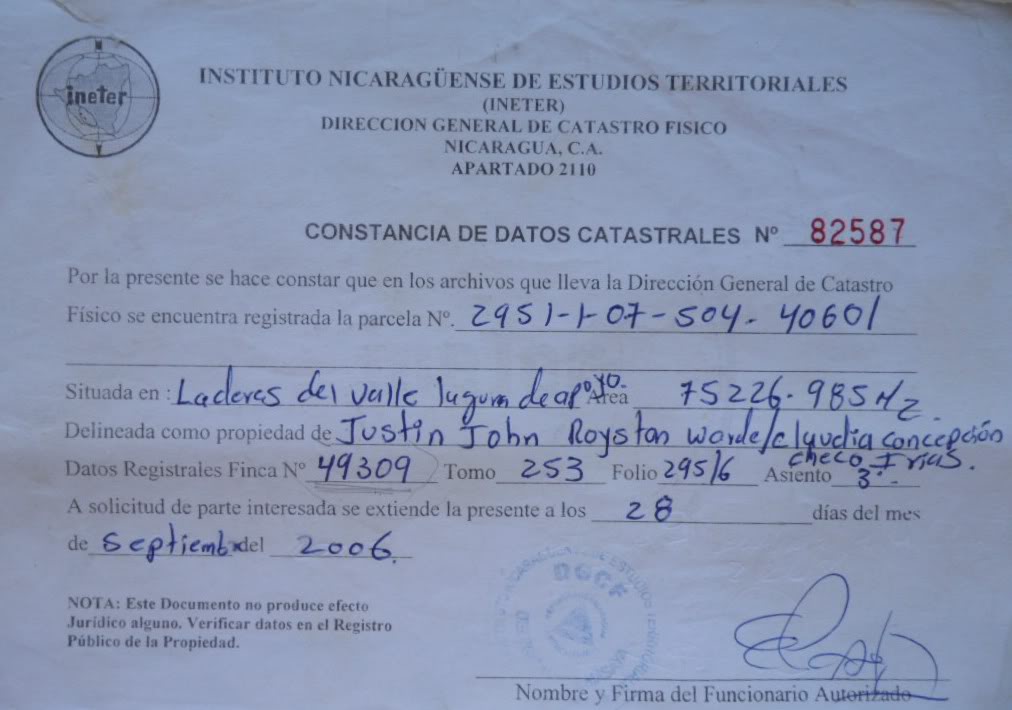 N
ineter
INSTITUTO NICARAGÜENSE DE ESTUDIOS TERRITORIALES
(INETER)
DIRECCION GENERAL DE CATASTRO FISICO
NICARAGUA, C.A.
APARTADO 2110
CONSTANCIA DE DATOS CATASTRALES Nº 82587
Por la presente se hace constar que en los archivos que lleva la Dirección General de Catastro
Físico se encuentra registrada la parcela Nº. 2951-1-07-504-40601
Situada en : Laderas del valle laguna de apoyo. Area 75226.985 M2.
Delineada como propiedad de Justin John Roystan Warde/claudia concepción
checo Frias.
Datos Registrales Finca Nº 49309 Tomo 253 Folio 295/6 Asiento 3º.
A solicitud de parte interesada se extiende la presente a los 28 días del mes
de Septiemb del 2006.
NOTA: Este Documento no produce efecto
Jurídico alguno. Verificar datos en el Registro
Público de la Propiedad.
DGCF
Nombre y Firma del Funcionario Autorizado